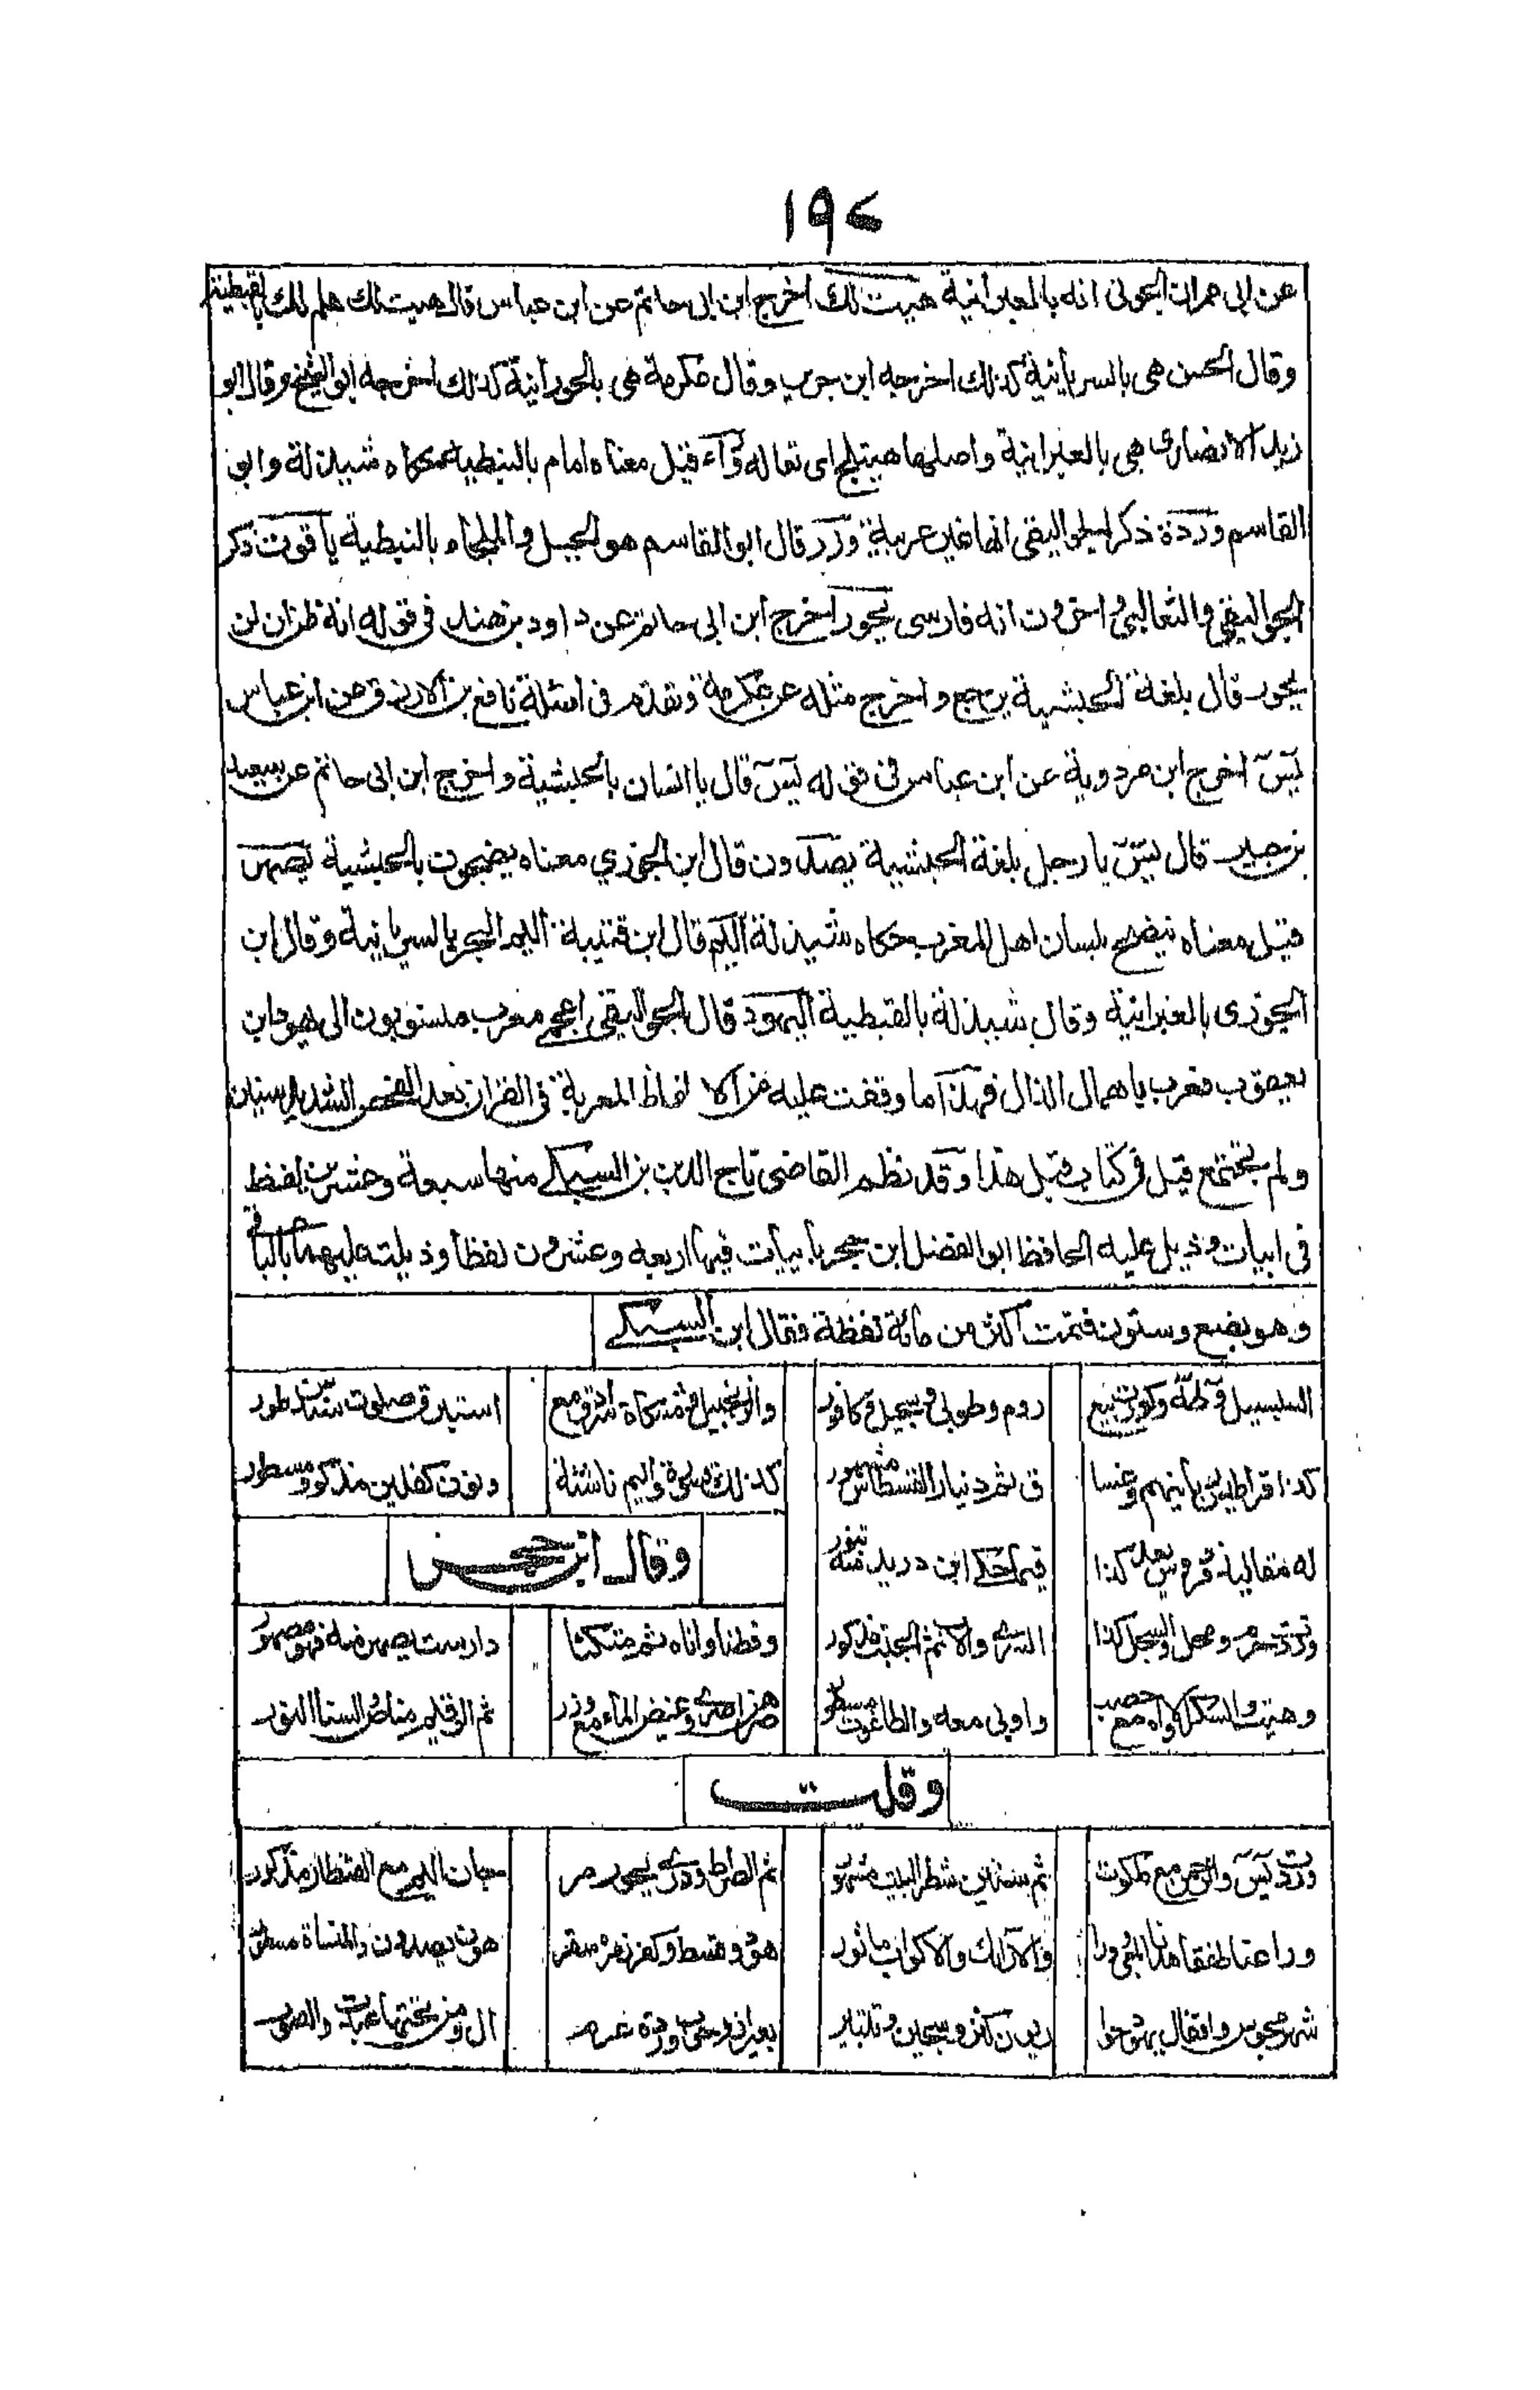 ١٩٧
عن ابى عمران الجونى انه بالعبرانية هيت لك اخرج ابن ابى حاتم عن ابن عباس قال هيت لك هلم لك بالقبطية
وقال الحسن هى بالسريانية كذلك اخرجه ابن جرير وقال عكرمة هى بالحورانية كذلك اخرجه ابو الشيخ وقال ابو
زيد الانصارى هى بالعبرانية واصلها هيتلج اى تعاله وراء قيل معناه امام بالنبطية حكاه شيذلة وابو
القاسم وردة ذكر الجواليقى انها غير عربية وزر قال ابو القاسم هو الجبل والملجاء بالنبطية ياقوت ذكر
الجواليقى والثعالبى واخرون انه فارسى يحور اخرج ابن ابى حاتم عن داود بن هند فى قوله انه ظن ان لن
يحور قال بلغة الحبشية يرجع واخرج مثله عن عكرمة وتقدم فى اسئلة نافع بن الازرق عن ابن عباس
يٓسٓ اخرج ابن مردوية عن ابن عباس فى قوله يٓسٓ قال يا انسان بالحبشية واخرج ابن ابى حاتم عن سعيد
بن جبير قال يٓسٓ يا رجل بلغة الحبشية يصدون قال ابن الجوزي معناه يضجون بالحبشية يصهر
قيل معناه ينضج بلسان اهل المغرب حكاه شيذلة اليم قال ابن قتيبة اليم البحر بالسريانية وقال ابن
الجوزى بالعبرانية وقال شيذلة بالقبطية اليهود قال الجواليقى اعجمى معرب منسوبون الى يهود ابن
يعقوب معرب باهمال الذال فهذا ما وقفت عليه من الالفاظ المعربة فى القران بعد الفحص الشديد سنين
ولم يجتمع قبل فى كتاب قبل هذا وقد نظم القاضى تاج الدين بن السبكى منها سبعة وعشرين لفظا
فى ابيات وذيل عليه الحافظ ابو الفضل ابن حجر بأبيات فيها اربعه وعشرون لفظا وذيلت عليهما بالباقى
وهو بضع وستون فتمت اكثر من مائة لفظة فقال ابن السبكى
السلسبيل وطه وكورت بيع روم وطوبى وسجيل وكافور والزنجبيل ومشكاة سرادق مع استبرق صلوت سندس طور
كذا قراطيس ربانيهم وغسا ق ثم دينار القسطاس مشهور كذلك قسورة واليم ناشئة ويؤت كفلين مذكور ومسطور
له مقاليد فردوس يعد كذا فيما حكى ابن دريد منه تنور
وقال ابن حجر
وزدت حرم ومهل والسجل كذا السرى والاب ثم الجبت مذكور وقطنا واناه ثم متكئا دارست يصهر منه فهو مصهور
وهيت والسكر الاواه مع حصب واوبى معه والطاغوت مسطور صرهن اصرى وغيض الماء مع وزر ثم الرقيم مناص والسنا النور
وقلت
وزدت يٓسٓ والرحمن مع ملكوت ثم سينين شطر البيت مشهور ثم الصراط ودرى يحور ومر جان اليم مع القنطار مذكور
وراعنا طفقا هدنا ابلعى ورا والارائك والاكواب ماثور هود وقسط وكفر زمره سقر هون يصدون والمنساة مسطور
شهر مجوس واقفال يهود حوا ريون كنز وسجين وتتبير بعير ازر حوب وردة عرم ال ومن تحتها عبدت والصور